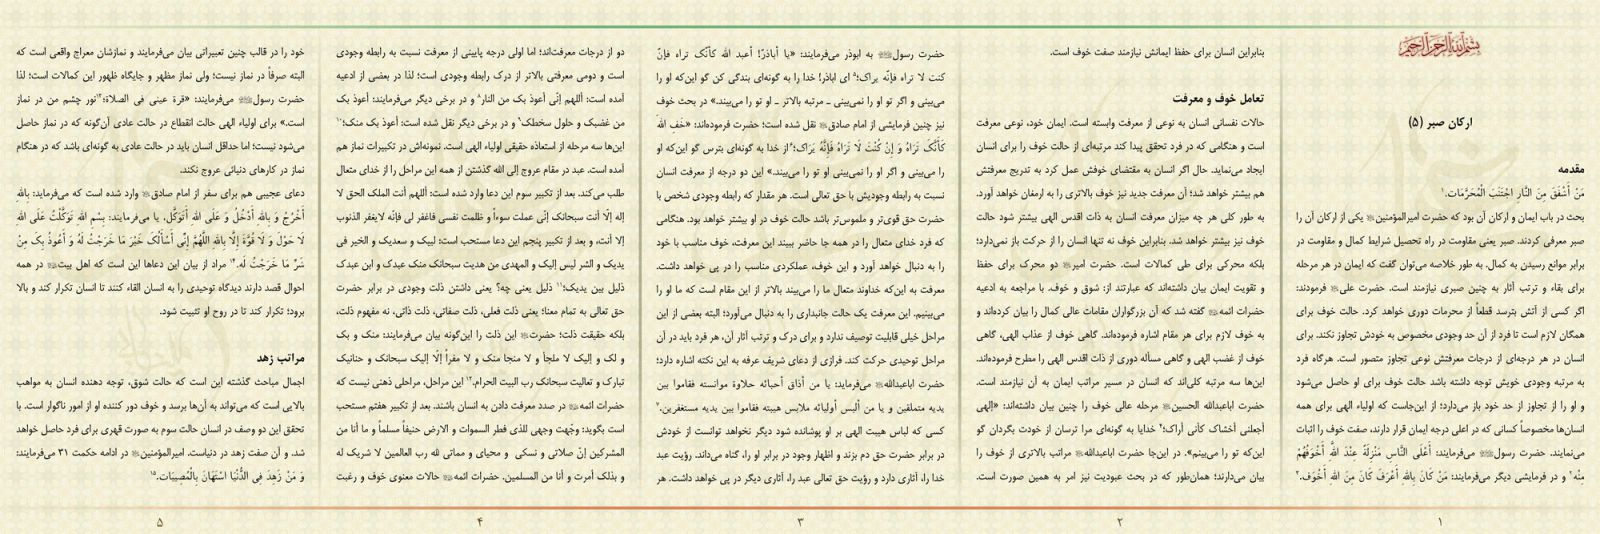 بسم الله الرحمن الرحیم
ارکان صبر (۵)
مقدمه
مَنْ أَشْفَقَ مِنَ النَّارِ اجْتَنَبَ الْمُحَرَّمَاتِ.۱
بحث در باب ایمان و ارکان آن بود که حضرت امیرالمؤمنین یکی از ارکان آن را
صبر معرفی کردند. صبر یعنی مقاومت در راه تحصیل شرایط کمال و مقاومت در
برابر موانع رسیدن به کمال. به طور خلاصه می‌توان گفت که ایمان در هر مرحله
برای بقاء و ترتب آثار به چنین صبری نیازمند است. حضرت علی فرمودند:
اگر کسی از آتش بترسد قطعاً از محرمات دوری خواهد کرد. حالت خوف برای
همگان لازم است تا فرد از آن حد وجودی مخصوص به خودش تجاوز نکند. برای
انسان در هر درجه‌ای از درجات معرفتش نوعی تجاوز متصور است. هرگاه فرد
به مرتبه وجودی خویش توجه داشته باشد حالت خوف برای او حاصل می‌شود
و او را از تجاوز از حد خود باز می‌دارد؛ از این‌جاست که اولیاء الهی برای همه
انسان‌ها مخصوصاً کسانی که در اعلی درجه ایمان قرار دارند، صفت خوف را اثبات
می‌نمایند. حضرت رسول می‌فرمایند: أَعْلَى النَّاسِ مَنْزِلَةً عِنْدَ اللَّهِ أَخْوَفُهُمْ
مِنْهُ۲ و در فرمایشی دیگر می‌فرمایند: مَنْ كَانَ بِاللهِ أَعْرَفَ كَانَ مِنَ اللهِ أَخْوَفَ.۳
۱
بنابراین انسان برای حفظ ایمانش نیازمند صفت خوف است.
تعامل خوف و معرفت
حالات نفسانی انسان به نوعی از معرفت وابسته است. ایمان خود، نوعی معرفت
است و هنگامی که در فرد تحقق پیدا کند مرتبه‌ای از حالت خوف را برای انسان
ایجاد می‌نماید. حال اگر انسان به مقتضای خوفش عمل کرد به تدریج معرفتش
هم بیشتر خواهد شد؛ آن معرفت جدید نیز خوف بالاتری را به ارمغان خواهد آورد.
به طور کلی هر چه میزان معرفت انسان به ذات اقدس الهی بیشتر شود حالت
خوف نیز بیشتر خواهد شد. بنابراین خوف نه تنها انسان را از حرکت باز نمی‌دارد؛
بلکه محرکی برای طی کمالات است. حضرت امیر دو محرک برای حفظ
و تقویت ایمان بیان داشته‌اند که عبارتند از: شوق و خوف. با مراجعه به ادعیه
حضرات ائمه گفته شد که آن بزرگواران مقامات عالی کمال را بیان کرده‌اند و
به خوف لازم برای هر مقام اشاره فرموده‌اند. گاهی خوف از عذاب الهی، گاهی
خوف از غضب الهی و گاهی مسأله دوری از ذات اقدس الهی را مطرح فرموده‌اند.
این‌ها سه مرتبه کلی‌اند که انسان در مسیر مراتب ایمان به آن نیازمند است.
حضرت اباعبدالله الحسین مرحله عالی خوف را چنین بیان داشته‌اند: «إلهی
أجعلنی أخشاک کأنی أراک؛۴ خدایا به گونه‌ای مرا ترسان از خودت بگردان گو
این‌که تو را می‌بینم». در این‌جا حضرت اباعبدالله مراتب بالاتری از خوف را
بیان می‌دارند؛ همان‌طور که در بحث عبودیت نیز امر به همین صورت است.
۲
حضرت رسول به ابوذر می‌فرمایند: «یا أباذرّ! أعبد الله کأنّک تراه فإنْ
کنت لا تراه فإنّه یراک؛۵ ای اباذر! خدا را به گونه‌ای بندگی کن گو این‌که او را
می‌بینی و اگر تو او را نمی‌بینی ـ مرتبه بالاتر ـ او تو را می‌بیند.» در بحث خوف
نیز چنین فرمایشی از امام صادق نقل شده است؛ حضرت فرموده‌اند: «خَفِ اللهَ
كَأَنَّكَ تَرَاهُ وَ إِنْ كُنْتَ لَا تَرَاهُ فَإِنَّهُ يَرَاكَ؛۶ از خدا به گونه‌ای بترس گو این‌که او
را می‌بینی و اگر او را نمی‌بینی او تو را می‌بیند.» این دو درجه از معرفت انسان
نسبت به رابطه وجودیش با حق تعالی است. هر مقدار که رابطه وجودی شخص با
حضرت حق قوی‌تر و ملموس‌تر باشد حالت خوف در او بیشتر خواهد بود. هنگامی
که فرد خدای متعال را در همه جا حاضر ببیند این معرفت، خوف مناسب با خود
را به دنبال خواهد آورد و این خوف، عملکردی مناسب را در پی خواهد داشت.
معرفت به این‌که خداوند متعال ما را می‌بیند بالاتر از این مقام است که ما او را
می‌بینیم. این معرفت یک حالت جانبداری را به دنبال می‌آورد؛ البته بعضی از این
مراحل خیلی قابلیت توصیف ندارد و برای درک و ترتب آثار آن، هر فرد باید در آن
مراحل توحیدی حرکت کند. فرازی از دعای شریف عرفه به این نکته اشاره دارد؛
حضرت اباعبدالله می‌فرماید: یا من أذاق أحبائه حلاوة موانسته فقاموا بین
یدیه متملقین و یا من ألبس أولیائه ملابس هیبته فقاموا بین یدیه مستغفرین.۷
کسی که لباس هیبت الهی بر او پوشانده شود دیگر نخواهد توانست از خودش
در برابر حضرت حق دم بزند و اظهار وجود در برابر او را، گناه می‌داند. رؤیت عبد
خدا را، آثاری دارد و رؤیت حق تعالی عبد را، آثاری دیگر در پی خواهد داشت. هر
۳
دو از درجات معرفت‌اند؛ اما اولی درجه پایینی از معرفت نسبت به رابطه وجودی
است و دومی معرفتی بالاتر از درک رابطه وجودی است؛ لذا در بعضی از ادعیه
آمده است: أللهم إنّی أعوذ بک من النار۸ و در برخی دیگر می‌فرمایند: أعوذ بک
من غضبک و حلول سخطک۹ و در برخی دیگر نقل شده است: أعوذ بک منک؛۱۰
این‌ها سه مرحله از استعاذه حقیقی اولیاء الهی است. نمونه‌اش در تکبیرات نماز هم
آمده است. عبد در مقام عروج إلی الله گذشتن از همه این مراحل را از خدای متعال
طلب می‌کند. بعد از تکبیر سوم این دعا وارد شده است: أللهم أنت الملک الحق لا
إله إلّا أنت سبحانک إنّی عملت سوءاً و ظلمت نفسی فاغفر لی فإنّه لایغفر الذنوب
إلا أنت، و بعد از تکبیر پنجم این دعا مستحب است: لبیک و سعدیک و الخیر فی
یدیک و الشر لیس إلیک و المهدی من هدیت سبحانک منک عبدک و ابن عبدک
ذلیل بین یدیک؛۱۱ ذلیل یعنی چه؟ یعنی داشتن ذلت وجودی در برابر حضرت
حق تعالی به تمام معنا؛ یعنی ذلت فعلی، ذلت صفاتی، ذلت ذاتی، نه مفهوم ذلت،
بلکه حقیقت ذلت؛ حضرت این ذلت را این‌گونه بیان می‌فرمایند: منک و بک
و لک و إلیک لا ملجأ و لا منجا منک و لا مفراً إلّا إلیک سبحانک و حنانیک
تبارک و تعالیت سبحانک رب البیت الحرام.۱۲ این مراحل، مراحلی ذهنی نیست که
حضرات ائمه در صدد معرفت دادن به انسان باشند. بعد از تکبیر هفتم مستحب
است بگوید: وجّهت وجهی للذی فطر السموات و الارض حنیفاً مسلماً و ما أنا من
المشرکین إنّ صلاتی و نسکی و محیای و مماتی لله رب العالمین لا شریک له
و بذلک أمرت و أنا من المسلمین. حضرات ائمه حالات معنوی خوف و رغبت
۴
خود را در قالب چنین تعبیراتی بیان می‌فرمایند و نمازشان معراج واقعی است که
البته صرفاً در نماز نیست؛ ولی نماز مظهر و جایگاه ظهور این کمالات است؛ لذا
حضرت رسول می‌فرمایند: «قرة عینی فی الصلاة؛۱۳ نور چشم من در نماز
است.» برای اولیاء الهی حالت انقطاع در حالت عادی آن‌گونه که در نماز حاصل
می‌شود نیست؛ اما حداقل انسان باید در حالت عادی به گونه‌ای باشد که در هنگام
نماز در کارهای دنیائی عروج نکند.
دعای عجیبی هم برای سفر از امام صادق وارد شده است که می‌فرماید: بِاللهِ
أَخْرُجُ وَ بِاللهِ أَدْخُلُ وَ عَلَى اللهِ أَتَوَكَّلُ، یا می‌فرمایند: بِسْمِ اللهِ تَوَكَّلْتُ عَلَى اللهِ
لَا حَوْلَ وَ لَا قُوَّةَ إِلَّا بِاللهِ اللَّهُمَّ إِنِّي أَسْأَلُكَ خَيْرَ مَا خَرَجْتُ لَهُ وَ أَعُوذُ بِكَ مِنْ
شَرِّ مَا خَرَجْتُ لَهُ.۱۴ مراد از بیان این دعاها این است که اهل بیت در همه
احوال قصد دارند دیدگاه توحیدی را به انسان القاء کنند تا انسان تکرار کند و بالا
برود؛ تکرار کند تا در روح او تثبیت شود.
مراتب زهد
اجمال مباحث گذشته این است که حالت شوق، توجه دهنده انسان به مواهب
بالایی است که می‌تواند به آن‌ها برسد و خوف دور کننده او از امور ناگوار است. با
تحقق این دو وصف در انسان حالت سوم به صورت قهری برای فرد حاصل خواهد
شد. و آن صفت زهد در دنیاست. امیرالمؤمنین در ادامه حکمت ۳۱ می‌فرمایند:
وَ مَنْ زَهِدَ فِي الدُّنْيَا اسْتَهَانَ بِالْمُصِيبَاتِ.۱۵
۵